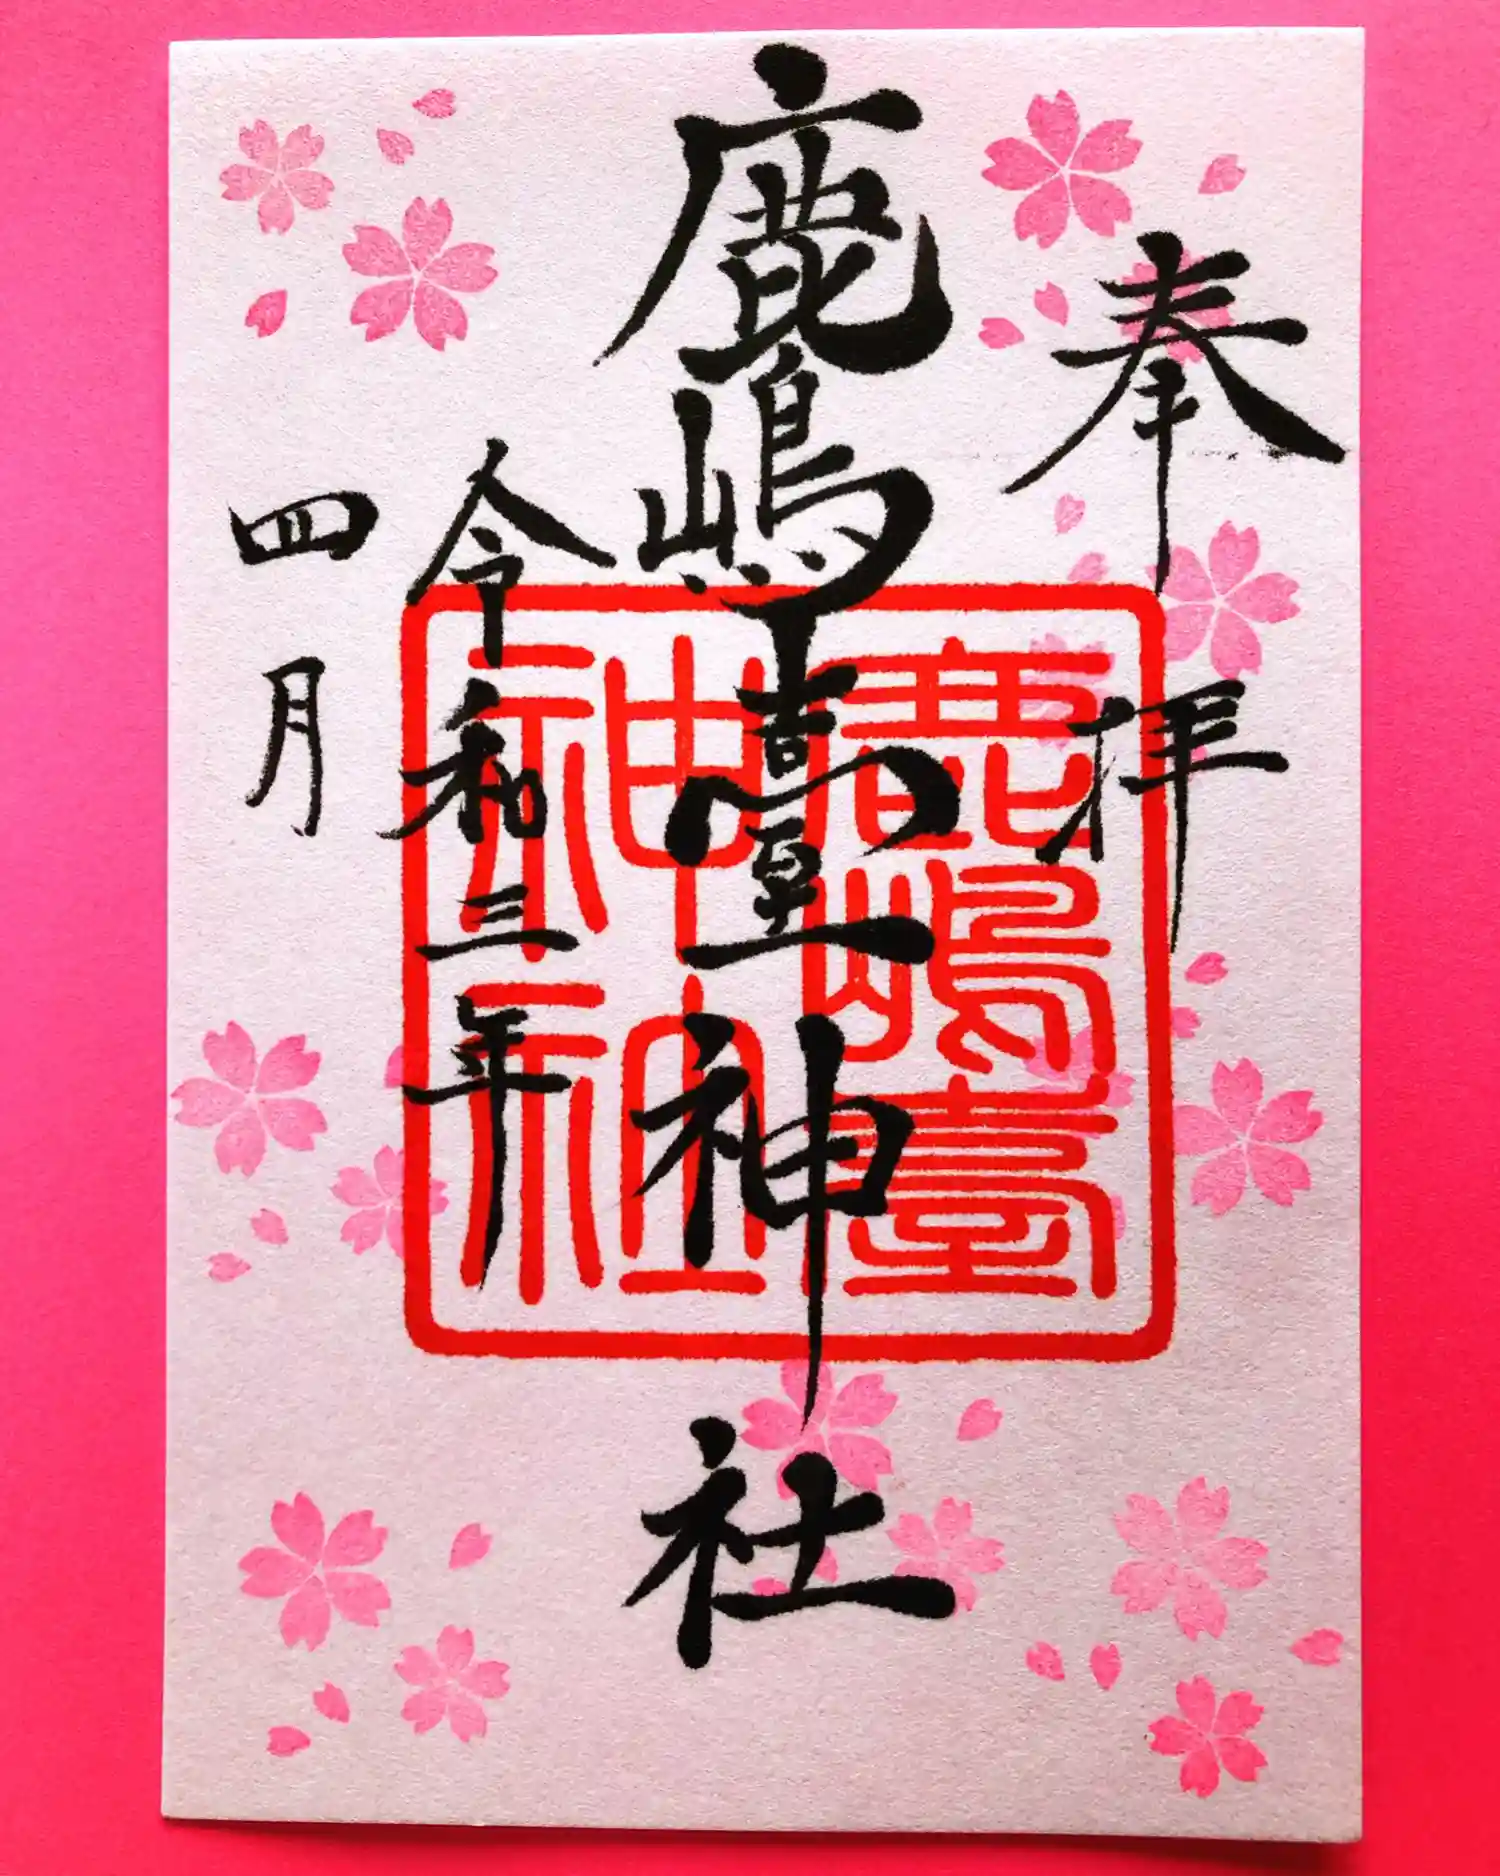 奉拝
鹿嶋臺神社
鹿嶋臺
神社
令和三年
四月